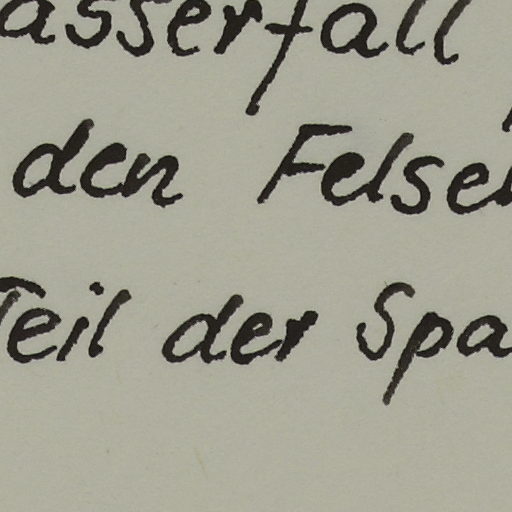 asserfall
den Felse
Teil der Spa